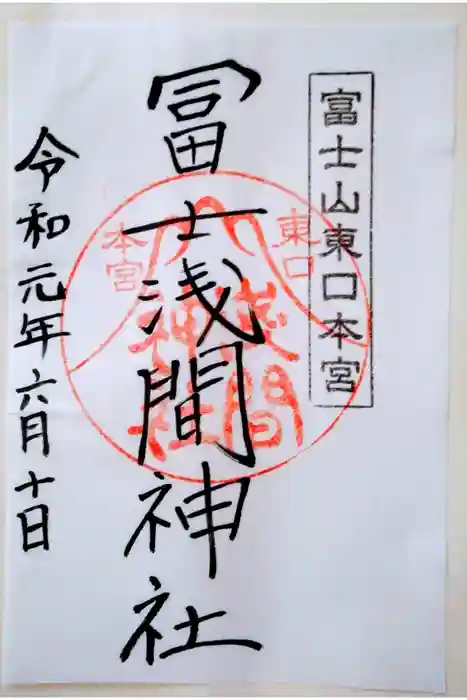 富士山東口本宮
冨士浅間神社
令和元年六月十日
東口
本宮
浅間
神社